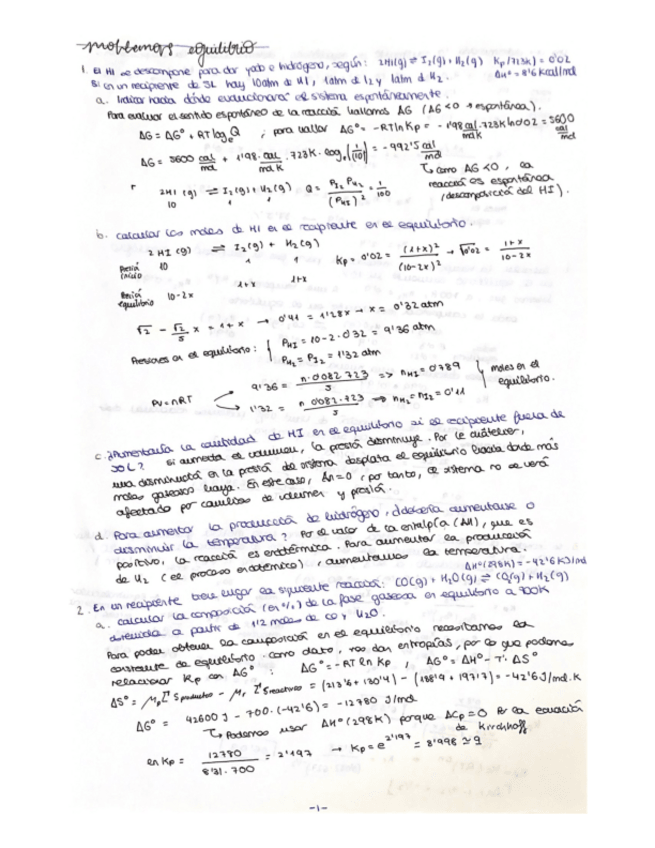 problemas equilibrio
1. El HI se descompone para dar yodo e hidrógeno, según: 2HI(g) ⇌ I₂(g) + H₂(g) Kp (723K) = 0'02
Si en un recipiente de 5L hay 10atm de HI, 1atm de I₂ y 1atm de H₂. ΔH° = 8'6 kcal/mol
a. Indicar hacia dónde evolucionará el sistema espontáneamente.
Para evaluar el sentido espontáneo de la reacción hallamos ΔG (ΔG<0 → espontánea).
ΔG = ΔG° + RT logₑ Q ; para hallar ΔG° = -RT ln Kp = -1'98 cal/mol K · 723K ln 0'02 = 5600 cal/mol
ΔG = 5600 cal/mol + 1'98 cal/mol K · 723K · logₑ (1/100) = -992'5 cal/mol
↳ como ΔG<0, la
reacción es espontánea
(descomposición del HI).
2HI (g) ⇌ I₂(g) + H₂(g) Q = P I₂ P H₂ / (P HI)² = 1/100
10 1 1
b. calcular los moles de HI en el recipiente en el equilibrio.
2 HI (g) ⇌ I₂(g) + H₂(g)
Presión inicio 10 1 1 Kp = 0'02 = (1+x)² / (10-2x)² → √0'02 = 1+x / 10-2x
Presión equilibrio 10-2x 1+x 1+x
√2 - √2/5 x = 1+x → 0'41 = 1'28x → x = 0'32 atm
Presiones en el equilibrio: { P HI = 10-2·0'32 = 9'36 atm
P H₂ = P I₂ = 1'32 atm
PV = nRT
9'36 = n·0'082·723 / 5 => n HI = 0'789
1'32 = n 0'082·723 / 5 => n H₂ = n I₂ = 0'11
} moles en el equilibrio.
c. ¿Aumentaría la cantidad de HI en el equilibrio si el recipiente fuera de
10L? Si aumenta el volumen, la presión disminuye. Por Le Châtelier,
una disminución en la presión del sistema desplaza el equilibrio hacia donde más
moles gaseosos haya. En este caso, Δn=0, por tanto, el sistema no se verá
afectado por cambios de volumen y presión.
d. Para aumentar la producción de hidrógeno, ¿debería aumentarse o
disminuir la temperatura? Por el valor de la entalpía (ΔH), que es
positivo, la reacción es endotérmica. Para aumentar la producción
de H₂ (el proceso endotérmico), aumentamos la temperatura.
ΔH°(298K) = -42'6 KJ/mol
2. En un recipiente tiene lugar la siguiente reacción: CO(g) + H₂O(g) ⇌ CO₂(g) + H₂(g)
a. calcular la composición (en %) de la fase gaseosa en equilibrio a 700K
obtenida a partir de 1/2 moles de CO y H₂O.
Para poder obtener la composición en el equilibrio necesitamos la
constante de equilibrio. Como dato, nos dan entropías, por lo que podemos
relacionar Kp con ΔG°: ΔG° = -RT ln Kp, ΔG° = ΔH° - T· ΔS°
ΔS° = Σ S productos - Σ S reactivos = (213'6 + 130'4) - (188'9 + 197'7) = -42'6 J/mol·K
ΔG° = 42600 J - 700·(-42'6) = -12780 J/mol
↳ Podemos usar ΔH°(298K) porque ΔCp = 0 Por la ecuación
de Kirchhoff
ln Kp = 12780 / 8'31·700 = 2'197 → Kp = e^2'197 = 8'998 ≃ 9
-1-